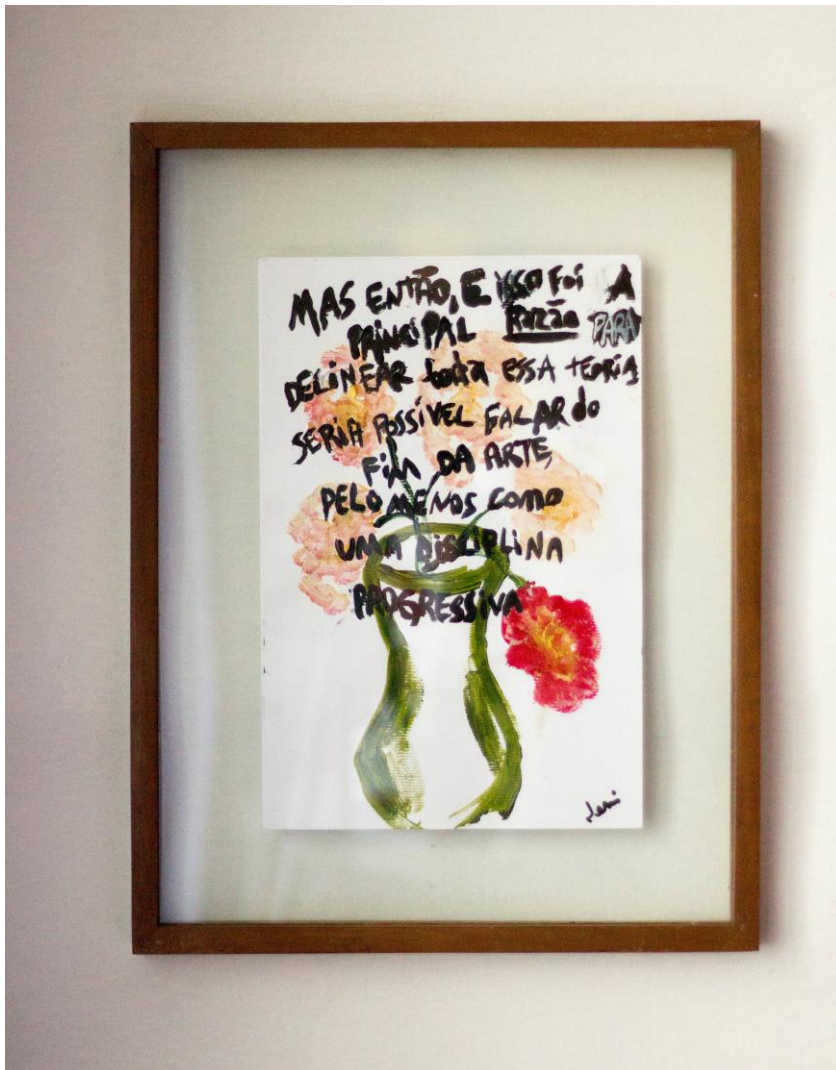 MAS ENTÃO, E ISSO FOI A
PRINCIPAL RAZÃO PARA
DELINEAR toda ESSA tEORIA
SERIA POSSÍVEL FALAR do
FiM DA ARTE
PELO MENOS COMO
UMA DISCIPLINA
PROGRESSIVA